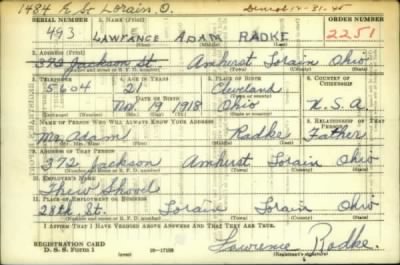 1484 E St Lorain, O.
SERIAL NUMBER 1. NAME (Print) ORDER NUMBER
493 LAWRANCE ADAM RADKE 2251
(First) (Middle) (Last)
2. ADDRESS (Print)
372 Jackson St Amhurst Lorain Ohio
(Number and street or R. F. D. number) (Town) (County) (State)
3. TELEPHONE 4. AGE IN YEARS 5. PLACE OF BIRTH 6. COUNTRY OF CITIZENSHIP
5604 21 Cleveland
DATE OF BIRTH (Town or county)
Nov. 19 1918 Ohio U.S.A.
(Exchange) (Number) (Mo.) (Day) (Yr.) (State or country)
7. NAME OF PERSON WHO WILL ALWAYS KNOW YOUR ADDRESS 8. RELATIONSHIP OF THAT PERSON
Mr. Adam Radke Father
(Mr., Mrs., Miss) (First) (Middle) (Last)
9. ADDRESS OF THAT PERSON
372 Jackson Amhurst Lorain Ohio
(Number and street or R. F. D. number) (Town) (County) (State)
10. EMPLOYER'S NAME
Thew Shovel
11. PLACE OF EMPLOYMENT OR BUSINESS
28th St. Lorain Lorain Ohio
(Number and street or R. F. D. number) (Town) (County) (State)
I AFFIRM THAT I HAVE VERIFIED ABOVE ANSWERS AND THAT THEY ARE TRUE.
REGISTRATION CARD
D. S. S. Form 1 (over) Lawrence Radke.
(Registrant's signature)